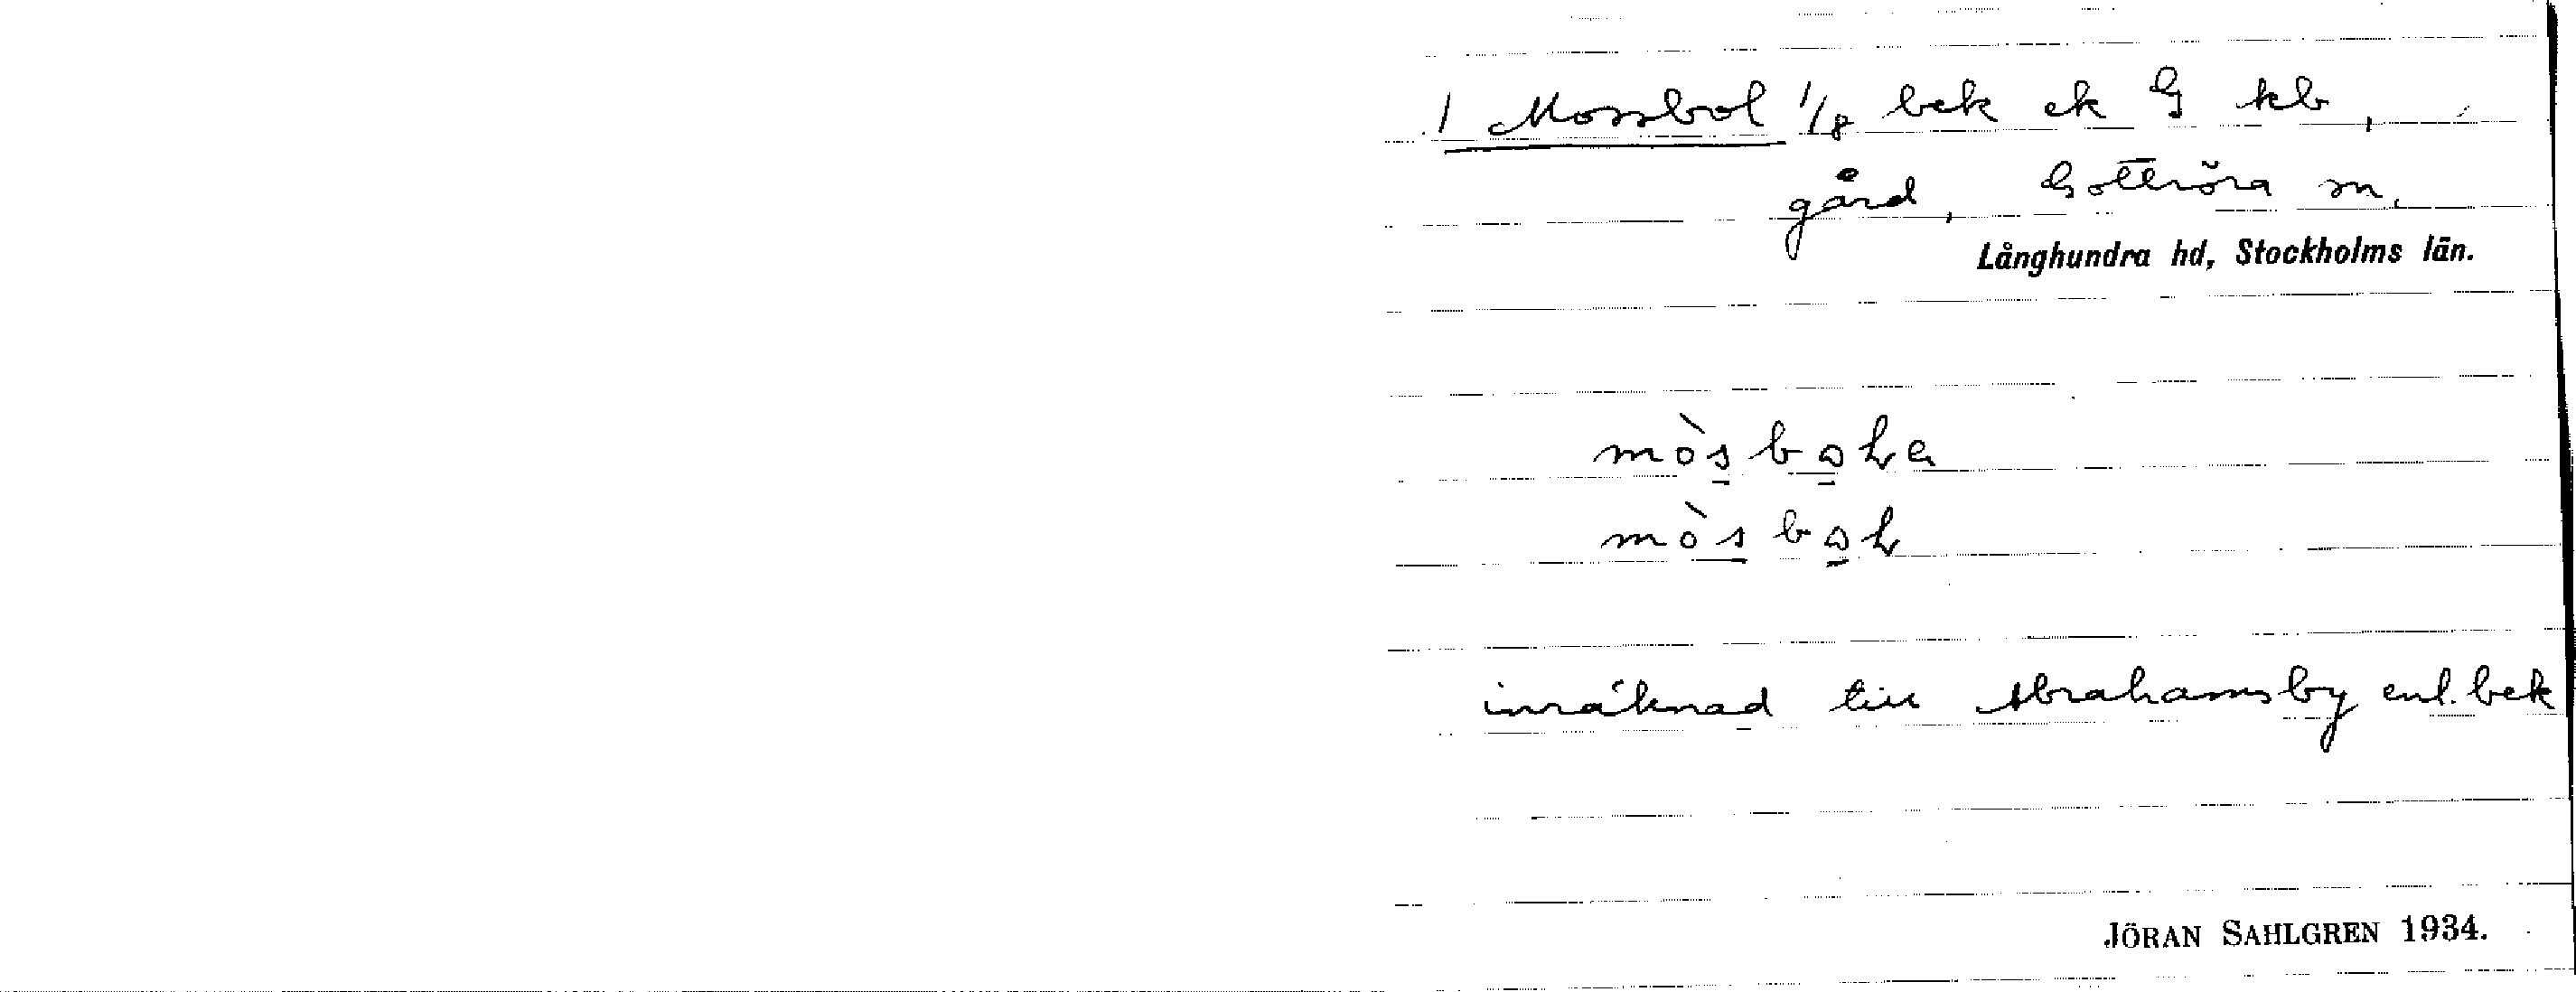 1 Mossbol 1/8 bek ek G kb,
gård, Gottröra sn,
Långhundra hd, Stockholms län.
inräknad till Abrahamsby enl. bek
JÖRAN SAHLGREN 1934.